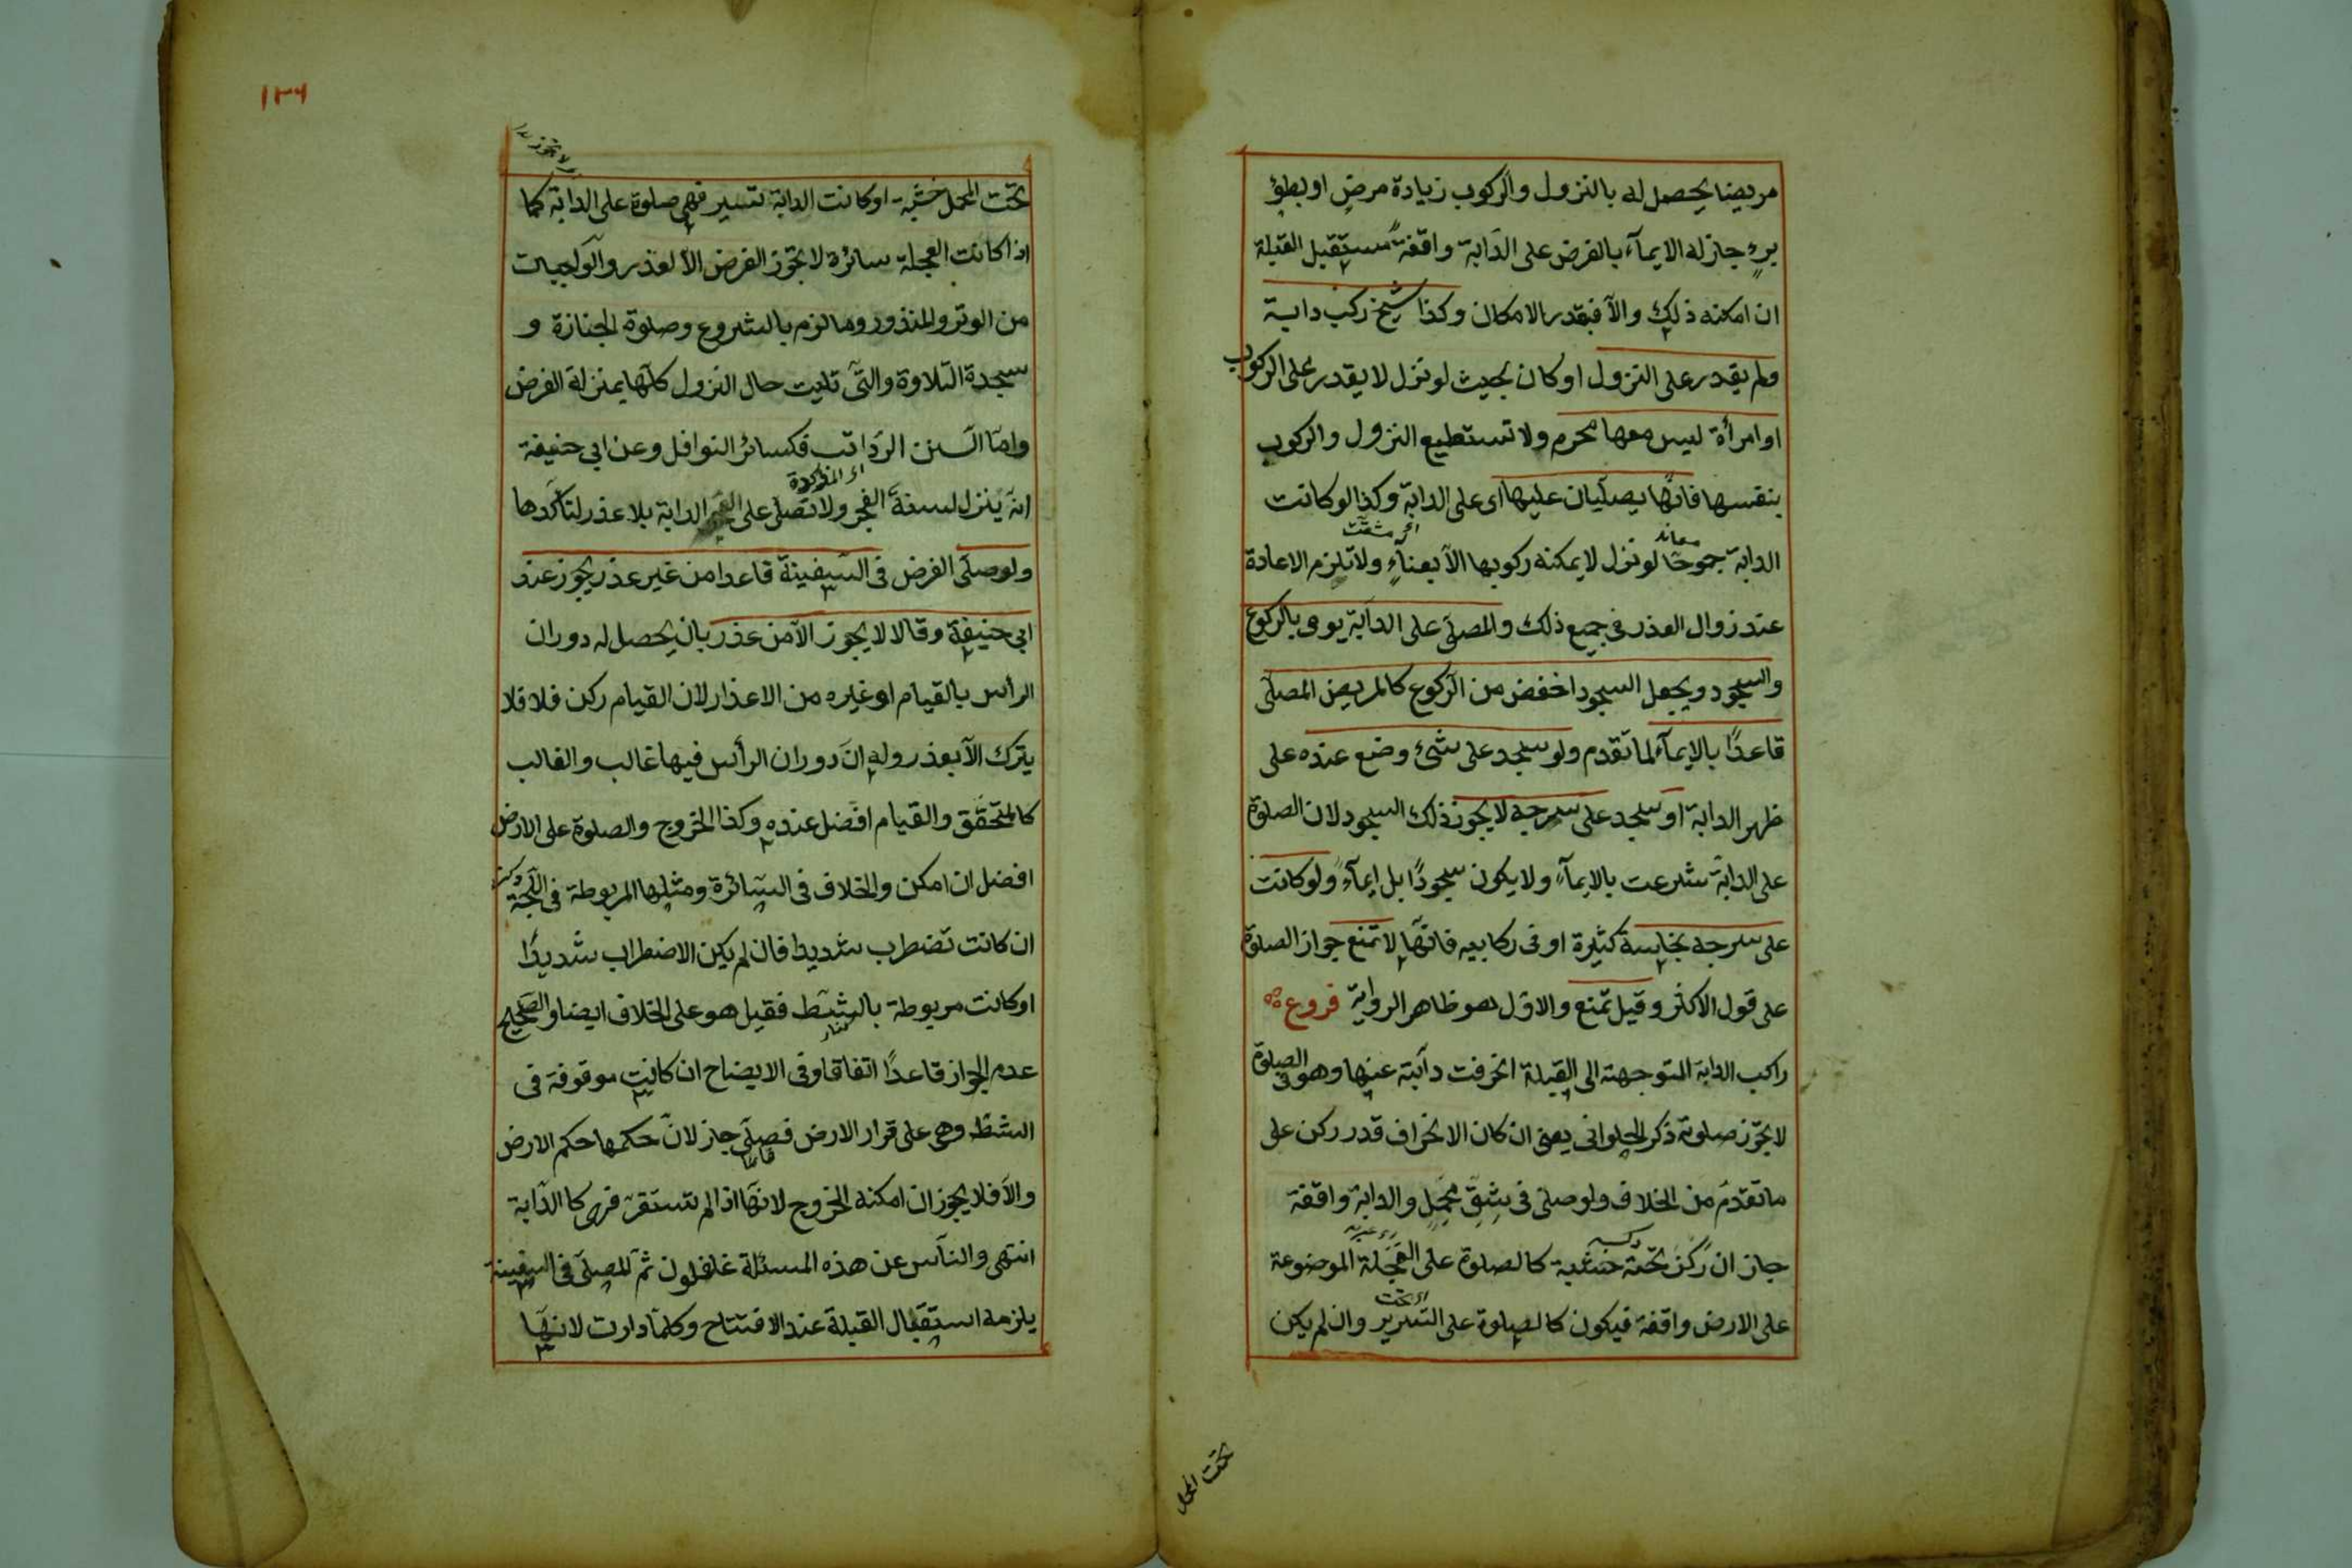 مريضا يحصل له بالنزول والركوب زيادة مرض او بطؤ
برء جاز له الايمآء بالفرض على الدّابة واقفةً مستقبل القبلة
ان امكنه ذلك والّا فبقدر الامكان وكذا شيخ ركب دابة
ولم يقدر على النزول او كان بحيث لو نزل لا يقدر على الركوب
او امرأة ليس معها محرم ولا تستطيع النزول والركوب
بنفسها فانّها يصلّيان عليها اى على الدابة وكذا لو كانت
معاند
اى مشقت
الدابة جموحًا لو نزل لا يمكنه ركوبها الّا بعناءٍ ولا تلزم الاعادة
عند زوال العذر فى جميع ذلك والمصلّى على الدابّة يومى بالركوع
والسجود ويجعل السجود اخفض من الرّكوع كالمريض المصلّى
قاعدًا بالايمآء لما تقدم ولو سجد على شئ وضع عنده على
ظهر الدابة او سجد على سرجه لا يجوز ذلك السجود لان الصلوة
على الدابّة شرعت بالايمآء ولا يكون سجودًا بل ايمآءً ولو كانت
على سرجه نجاسة كثيرة او فى ركابيه فانّها لا تمنع جواز الصلوة
على قول الاكثر وقيل تمنع والاوّل هو ظاهر الرواية فروع
راكب الدابة المتوجهة الى القبلة انحرفت دآبته عنها وهو فى الصلوة
لا تجوز صلوته ذكر الحلوانى يعنى ان كان الانحراف قدر ركن على
ما تقدم من الخلاف ولو صلى فى شِقّ مَحمِلٍ والدابة واقفة
جاز ان ركز تحته خشبة كالصلوة على العَجَلة الموضوعة
اى تحت
على الارض واقفة فيكون كالصلوة على السّرير وان لم يكن
تحت المحمل
١٣٦
لا تجوز
تحت المحمل خشبة او كانت الدابة تسير فهى صلوة على الدابة كما
اذا كانت العجلة سائرة لا تجوز الفرض الّا لعذر والواجبات
من الوتر والمنذور وما لزم بالشروع وصلوة الجنازة و
سجدة التلاوة والتى تليت حال النزول كلّها بمنزلة الفرض
وامّا السّنن الرّواتب فكسائر النوافل وعن ابى حنيفة
اى المذكورة
انّه ينزل لسنة الفجر ولا تصلى على الدابة بلا عذر لتأكّدها
ولو صلّى الفرض فى السّفينة قاعدا من غير عذر يجوز عند
ابى حنيفة وقالا لا يجوز الّا من عذر بان يحصل له دوران
الرأس بالقيام او غيره من الاعذار لان القيام ركن فلا فلا
يترك الّا بعذر وله انّ دوران الرأس فيها غالب والغالب
كالمتحقّق والقيام افضل عنده وكذا الخروج والصلوة على الارض
افضل ان امكن والخلاف فى السّائرة ومثلها المربوطة فى اللّجّة
ان كانت تضطرب شديدا فان لم يكن الاضطراب شديدًا
او كانت مربوطة بالشّط فقيل هو على الخلاف ايضا والصّحيح
كنار
عدم الجواز قاعدًا اتفاقا وفى الايضاح ان كانت موقوفة فى
الشطّ وهى على قرار الارض فصلّى جاز لانّ حكمها حكم الارض
قائما
والّا فلا يجوز ان امكنه الخروج لانّها اذا لم تستقرّ فهى كالدّابة
انتهى والنّاس عن هذه المسئلة غافلون ثمّ المصلّى فى السفينة
يلزمه استقبال القبلة عند الافتتاح وكلّما دارت لانّها